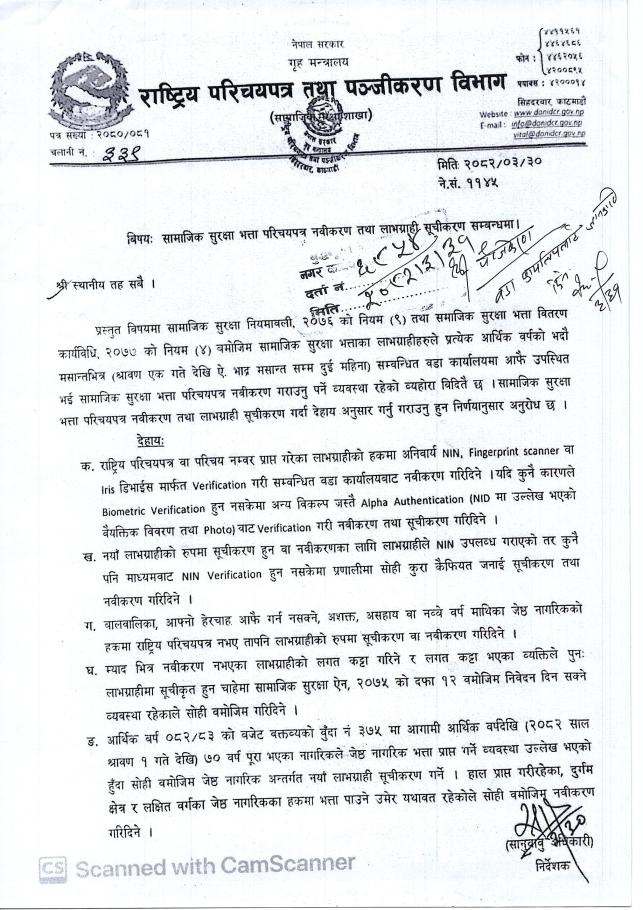 नेपाल सरकार
गृह मन्त्रालय
राष्ट्रिय परिचयपत्र तथा पञ्जीकरण विभाग
(सामाजिक सुरक्षा शाखा)
फोन :
४२११५६१
४४६४६८६
४४६२०५६
४२००८९५
फ्याक्स : ४२०००१५
सिंहदरवार, काठमाडौं
Website : www.donidcr.gov.np
E-mail : info@donidcr.gov.np
vital@donidcr.gov.np
पत्र संख्या : २०८०/०८१
चलानी नं. : ३३९
मितिः २०८२/०३/३०
ने.सं. ११४५
विषयः सामाजिक सुरक्षा भत्ता परिचयपत्र नवीकरण तथा लाभग्राही सूचीकरण सम्बन्धमा।
नगर
दर्ता नं.
मिति
श्री स्थानीय तह सबै ।
प्रस्तुत विषयमा सामाजिक सुरक्षा नियमावली, २०७६ को नियम (९) तथा सामाजिक सुरक्षा भत्ता वितरण
कार्यविधि, २०७७ को नियम (४) बमोजिम सामाजिक सुरक्षा भत्ताका लाभग्राहीहरुले प्रत्येक आर्थिक वर्षको भदौ
मसान्तभित्र (श्रावण एक गते देखि ऐ. भाद्र मसान्त सम्म दुई महिना) सम्बन्धित वडा कार्यालयमा आफै उपस्थित
भई सामाजिक सुरक्षा भत्ता परिचयपत्र नवीकरण गराउनु पर्ने व्यवस्था रहेको व्यहोरा विदितै छ ।सामाजिक सुरक्षा
भत्ता परिचयपत्र नवीकरण तथा लाभग्राही सूचीकरण गर्दा देहाय अनुसार गर्नु गराउनु हुन निर्णयानुसार अनुरोध छ ।
देहायः
क. राष्ट्रिय परिचयपत्र वा परिचय नम्बर प्राप्त गरेका लाभग्राहीको हकमा अनिवार्य NIN, Fingerprint scanner वा
Iris डिभाईस मार्फत Verification गरी सम्बन्धित वडा कार्यालयबाट नवीकरण गरिदिने ।यदि कुनै कारणले
Biometric Verification हुन नसकेमा अन्य विकल्प जस्तै Alpha Authentication (NID मा उल्लेख भएको
वैयक्तिक विवरण तथा Photo) बाट Verification गरी नवीकरण तथा सूचीकरण गरिदिने ।
ख. नयाँ लाभग्राहीको रुपमा सूचीकरण हुन वा नवीकरणका लागि लाभग्राहीले NIN उपलब्ध गराएको तर कुनै
पनि माध्यमबाट NIN Verification हुन नसकेमा प्रणालीमा सोही कुरा कैफियत जनाई सूचीकरण तथा
नवीकरण गरिदिने ।
ग. बालबालिका, आफ्नो हेरचाह आफै गर्न नसक्ने, अशक्त, असहाय वा नब्बे वर्ष माथिका जेष्ठ नागरिकको
हकमा राष्ट्रिय परिचयपत्र नभए तापनि लाभग्राहीको रुपमा सूचीकरण वा नवीकरण गरिदिने ।
घ. म्याद भित्र नवीकरण नभएका लाभग्राहीको लगत कट्टा गरिने र लगत कट्टा भएका व्यक्तिले पुनः
लाभग्राहीमा सूचीकृत हुन चाहेमा सामाजिक सुरक्षा ऐन, २०७५ को दफा १२ बमोजिम निवेदन दिन सक्ने
व्यवस्था रहेकाले सोही बमोजिम गरिदिने ।
ङ. आर्थिक बर्ष ०८२/८३ को बजेट बक्तव्यको बुँदा नं ३७५ मा आगामी आर्थिक वर्षदेखि (२०८२ साल
श्रावण १ गते देखि) ७० वर्ष पूरा भएका नागरिकले जेष्ठ नागरिक भत्ता प्राप्त गर्ने व्यवस्था उल्लेख भएको
हुँदा सोही बमोजिम जेष्ठ नागरिक अन्तर्गत नयाँ लाभग्राही सूचीकरण गर्ने । हाल प्राप्त गरीरहेका, दुर्गम
क्षेत्र र लक्षित वर्गका जेष्ठ नागरिकका हकमा भत्ता पाउने उमेर यथावत रहेकोले सोही बमोजिम नवीकरण
गरिदिने ।
(सानुबाबु अधिकारी)
निर्देशक
CS Scanned with CamScanner